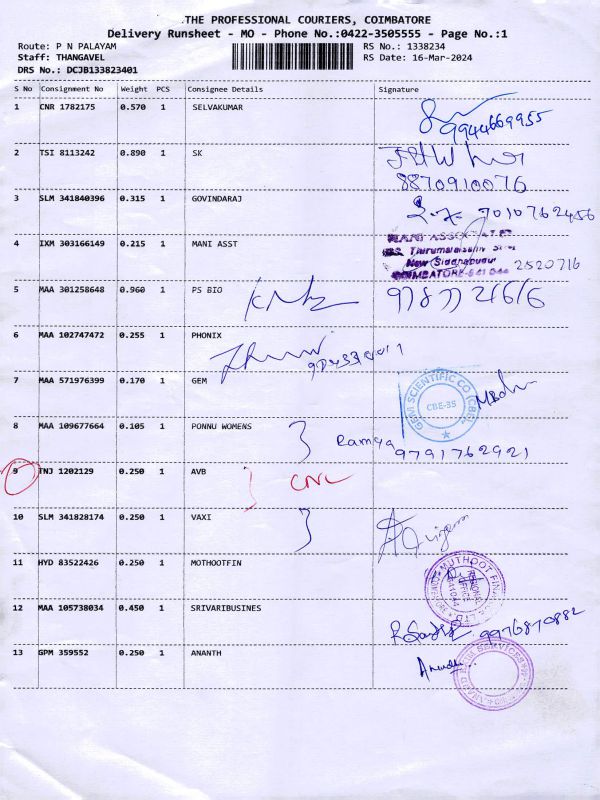 THE PROFESSIONAL COURIERS, COIMBATORE
Delivery Runsheet - MO - Phone No.:0422-3505555 - Page No.:1
Route: P N PALAYAM RS No.: 1338234
Staff: THANGAVEL RS Date: 16-Mar-2024
DRS No.: DCJB133823401
S No Consignment No Weight PCS Consignee Details Signature
1 CNR 1782175 0.570 1 SELVAKUMAR
9944669955
2 TSI 8113242 0.890 1 SK
8870910076
3 SLM 341840396 0.315 1 GOVINDARAJ
7010762456
4 IXM 303166149 0.215 1 MANI ASST
MANI ASSOCIATES
New Siddhapudur
COIMBATORE-641 044 2520716
5 MAA 301258648 0.960 1 PS BIO
6 MAA 102747472 0.255 1 PHONIX
7 MAA 571976399 0.170 1 GEM
GEM SCIENTIFIC CO (CBE)
CBE-35
8 MAA 109677664 0.105 1 PONNU WOMENS Ramya
9791762921
9 TNJ 1202129 0.250 1 AVB CNL
10 SLM 341828174 0.250 1 VAXI
11 HYD 83522426 0.250 1 MOTHOOTFIN
MUTHOOT
12 MAA 105738034 0.450 1 SRIVARIBUSINES
9976870882
13 GPM 359552 0.250 1 ANANTH